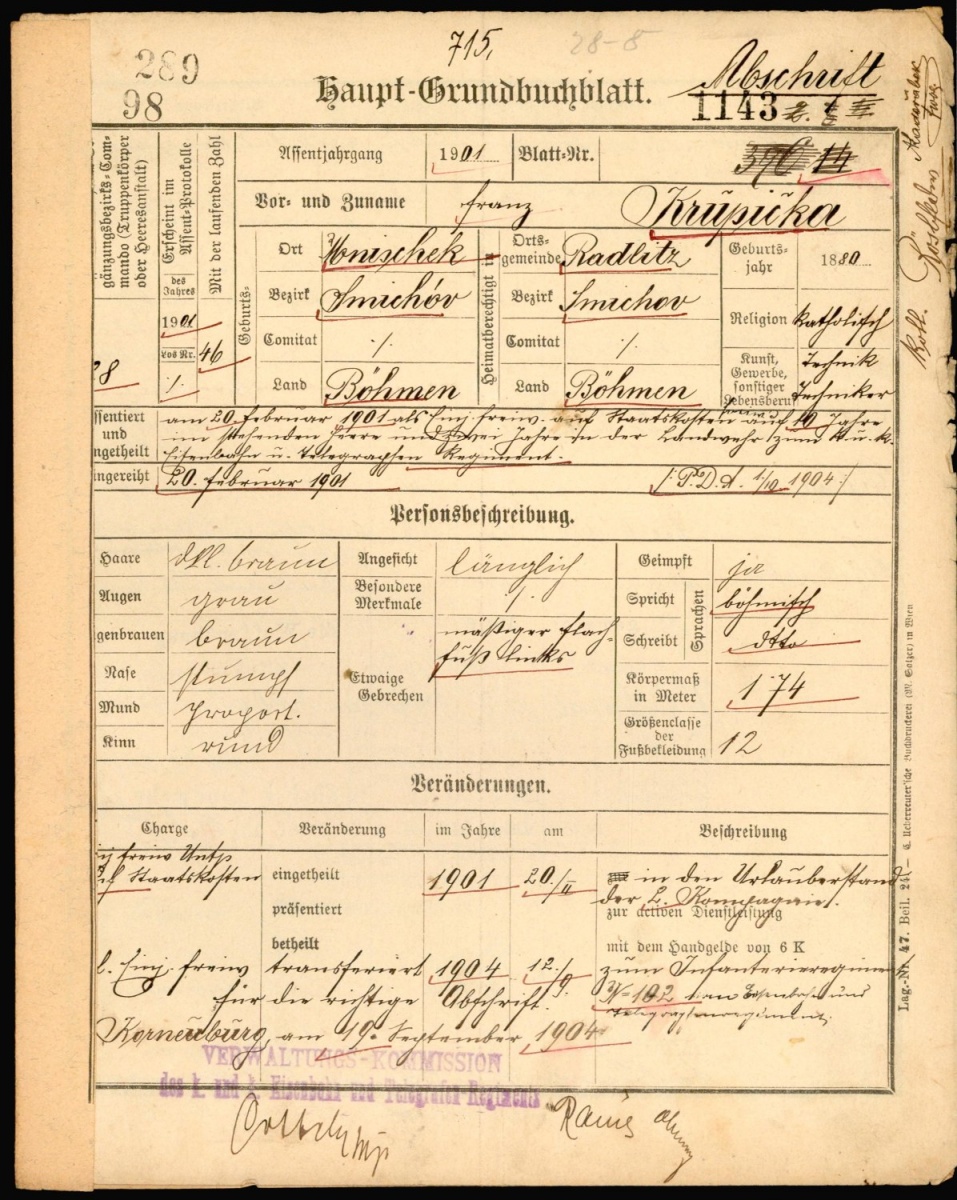 715.
28-8
289
98
Haupt-Grundbuchblatt.
Abschrift
1143
Assentjahrgang 1901 Blatt-Nr.
gänzungsbezirks-Com-
mando (Truppenkörper
oder Heeresanstalt)
Erscheint im
Assent-Protokolle
des
Jahres
1901
Los Nr.
·/·
Mit der laufenden Zahl
46
Vor- und Zuname Franz Krupička
Geburts-
Ort Mnischek
Bezirk Smichóv
Comitat ·/·
Land Böhmen
Heimatberechtigt in
Orts-
gemeinde Radlitz
Bezirk Smichov
Comitat ·/·
Land Böhmen
Geburts-
jahr 1880
Religion katholisch
Kunst,
Gewerbe,
sonstiger
Lebensberuf
Technik
Techniker
ssentiert
und
ngetheilt
am 20. Februar 1901 als Einj. freiw. auf Staatskosten auf 10 Jahre
im stehenden Heere und zwei Jahre in der Landwehr zum k. u. k.
Eisenbahn u. Telegraphen Regiment.
ngereiht 20. Februar 1901 /: P.D.d. 1/10 1904 :/
Personsbeschreibung.
Haare dkl. braun
Augen grau
genbrauen braun
Nase stumpf
Mund proport.
Kinn rund
Angesicht länglich
Besondere
Merkmale ·/·
Etwaige
Gebrechen
mäßiger Flach-
fuß links
Geimpft ja
Spricht böhmisch
Schreibt dtto
Sprachen
Körpermaß
in Meter 1·74
Größenclasse
der
Fußbekleidung 12
Veränderungen.
Charge Veränderung im Jahre am Beschreibung
j freiw Untp
uf Staatskosten eingetheilt 1901 20./II in den Urlauberstand
der 2. Kompagnie.
präsentiert zur activen Dienstleistung
betheilt mit dem Handgelde von 6 K
Einj. freiw transferiert 1904 12./9. zum Infanterieregiment
No 102 vom Eisenbahn und
Telegraphenregiment.
für die richtige Abschrift.
Korneuburg, am 19. September 1904
VERWALTUNGS-KOMMISSION
des k. und k. Eisenbahn und Telegrafen Regiments
Lag.-Nr. 47. Beil. 24. — C. Ueberreuter'sche Buchdruckerei (M. Salzer) in Wien